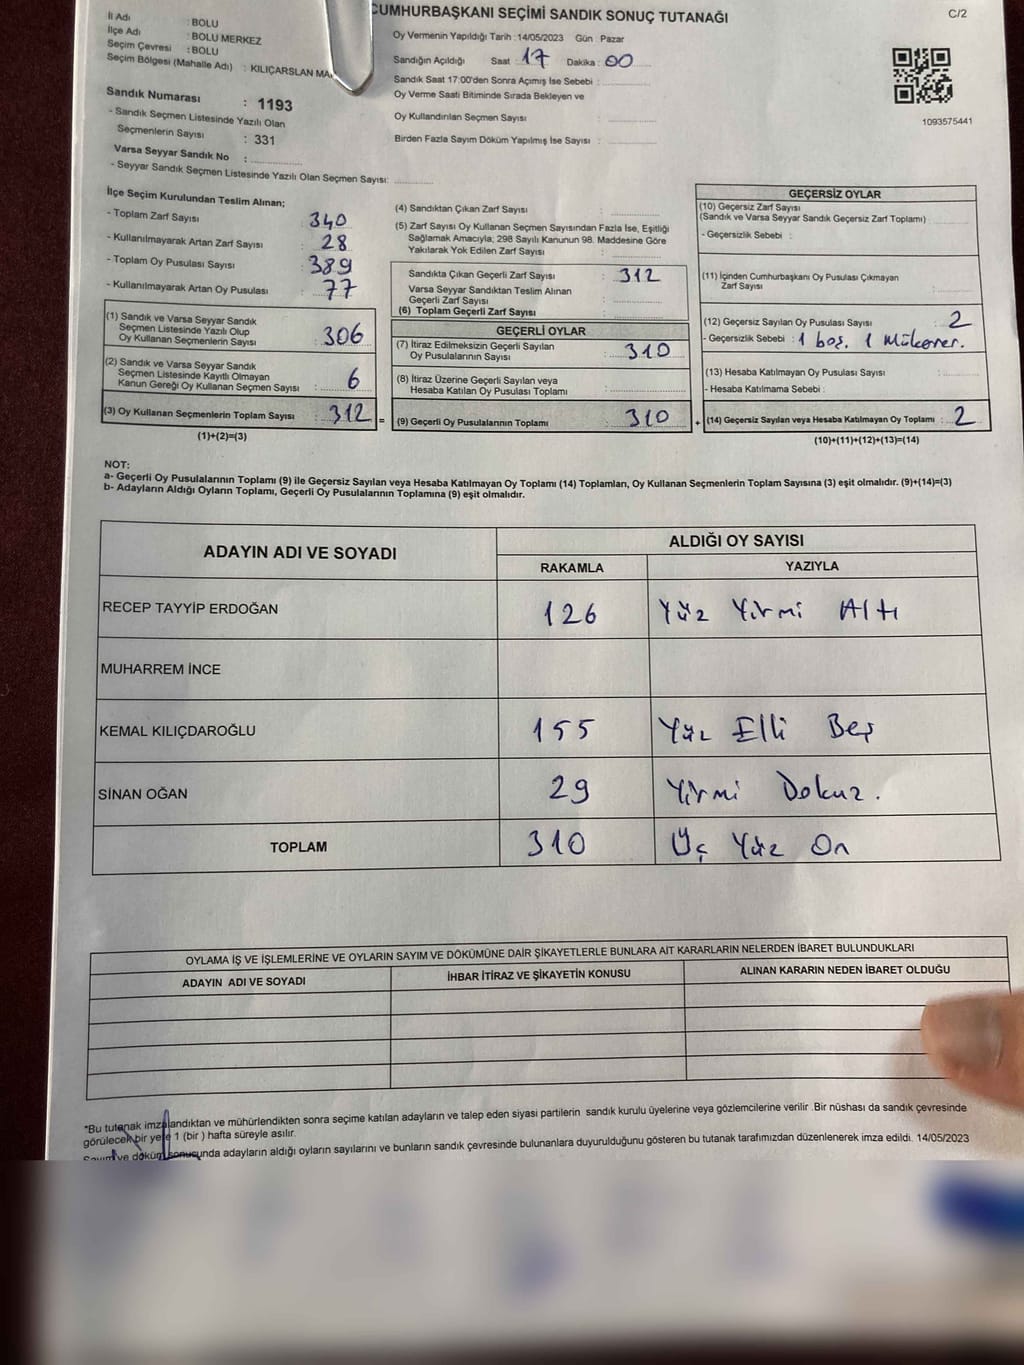 CUMHURBAŞKANI SEÇİMİ SANDIK SONUÇ TUTANAĞI
C/2
İl Adı : BOLU
İlçe Adı : BOLU MERKEZ
Seçim Çevresi : BOLU
Seçim Bölgesi (Mahalle Adı) : KILIÇARSLAN
Sandık Numarası : 1193
- Sandık Seçmen Listesinde Yazılı Olan
Seçmenlerin Sayısı : 331
Varsa Seyyar Sandık No :
- Seyyar Sandık Seçmen Listesinde Yazılı Olan Seçmen Sayısı:
Oy Vermenin Yapıldığı Tarih : 14/05/2023 Gün : Pazar
Sandığın Açıldığı Saat : 17 Dakika : 00
Sandık Saat 17:00'den Sonra Açımış İse Sebebi :
Oy Verme Saati Bitiminde Sırada Bekleyen ve
Oy Kullandırılan Seçmen Sayısı :
Birden Fazla Sayım Döküm Yapılmış İse Sayısı :
1093575441
İlçe Seçim Kurulundan Teslim Alınan;
- Toplam Zarf Sayısı : 340
- Kullanılmayarak Artan Zarf Sayısı : 28
- Toplam Oy Pusulası Sayısı : 389
- Kullanılmayarak Artan Oy Pusulası : 77
(1) Sandık ve Varsa Seyyar Sandık
Seçmen Listesinde Yazılı Olup
Oy Kullanan Seçmenlerin Sayısı : 306
(2) Sandık ve Varsa Seyyar Sandık
Seçmen Listesinde Kayıtlı Olmayan
Kanun Gereği Oy Kullanan Seçmen Sayısı : 6
(3) Oy Kullanan Seçmenlerin Toplam Sayısı : 312 =
(1)+(2)=(3)
(4) Sandıktan Çıkan Zarf Sayısı :
(5) Zarf Sayısı Oy Kullanan Seçmen Sayısından Fazla İse, Eşitliği
Sağlamak Amacıyla; 298 Sayılı Kanunun 98. Maddesine Göre
Yakılarak Yok Edilen Zarf Sayısı :
Sandıkta Çıkan Geçerli Zarf Sayısı : 312
Varsa Seyyar Sandıktan Teslim Alınan
Geçerli Zarf Sayısı :
(6) Toplam Geçerli Zarf Sayısı :
GEÇERLİ OYLAR
(7) İtiraz Edilmeksizin Geçerli Sayılan
Oy Pusulalarının Sayısı : 310
(8) İtiraz Üzerine Geçerli Sayılan veya
Hesaba Katılan Oy Pusulası Toplamı :
(9) Geçerli Oy Pusulalarının Toplamı : 310 +
GEÇERSİZ OYLAR
(10) Geçersiz Zarf Sayısı
(Sandık ve Varsa Seyyar Sandık Geçersiz Zarf Toplamı)
- Geçersizlik Sebebi :
(11) İçinden Cumhurbaşkanı Oy Pusulası Çıkmayan
Zarf Sayısı :
(12) Geçersiz Sayılan Oy Pusulası Sayısı : 2
- Geçersizlik Sebebi : 1 boş. 1 Mükerrer.
(13) Hesaba Katılmayan Oy Pusulası Sayısı :
- Hesaba Katılmama Sebebi :
(14) Geçersiz Sayılan veya Hesaba Katılmayan Oy Toplamı : 2
(10)+(11)+(12)+(13)=(14)
NOT:
a- Geçerli Oy Pusulalarının Toplamı (9) ile Geçersiz Sayılan veya Hesaba Katılmayan Oy Toplamı (14) Toplamları, Oy Kullanan Seçmenlerin Toplam Sayısına (3) eşit olmalıdır. (9)+(14)=(3)
b- Adayların Aldığı Oyların Toplamı, Geçerli Oy Pusulalarının Toplamına (9) eşit olmalıdır.
ADAYIN ADI VE SOYADI
ALDIĞI OY SAYISI
RAKAMLA YAZIYLA
RECEP TAYYİP ERDOĞAN 126 Yüz Yirmi Altı
MUHARREM İNCE
KEMAL KILIÇDAROĞLU 155 Yüz Elli Beş
SİNAN OĞAN 29 Yirmi Dokuz.
TOPLAM 310 Üç Yüz On
OYLAMA İŞ VE İŞLEMLERİNE VE OYLARIN SAYIM VE DÖKÜMÜNE DAİR ŞİKAYETLERLE BUNLARA AİT KARARLARIN NELERDEN İBARET BULUNDUKLARI
ADAYIN ADI VE SOYADI İHBAR İTİRAZ VE ŞİKAYETİN KONUSU ALINAN KARARIN NEDEN İBARET OLDUĞU
*Bu tutanak imzalandıktan ve mühürlendikten sonra seçime katılan adayların ve talep eden siyasi partilerin sandık kurulu üyelerine veya gözlemcilerine verilir .Bir nüshası da sandık çevresinde
görülecek bir yere 1 (bir ) hafta süreyle asılır.
Sayım ve döküm sonucunda adayların aldığı oyların sayılarını ve bunların sandık çevresinde bulunanlara duyurulduğunu gösteren bu tutanak tarafımızdan düzenlenerek imza edildi. 14/05/2023